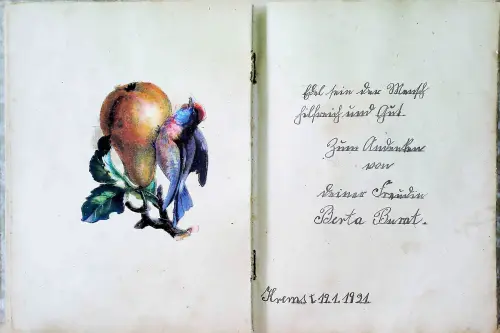 Edel sein der Mensch
hilfreich und Gut.
Zum Andenken
von
deiner Freudin
Berta Burat.
Krems 19.1.1921